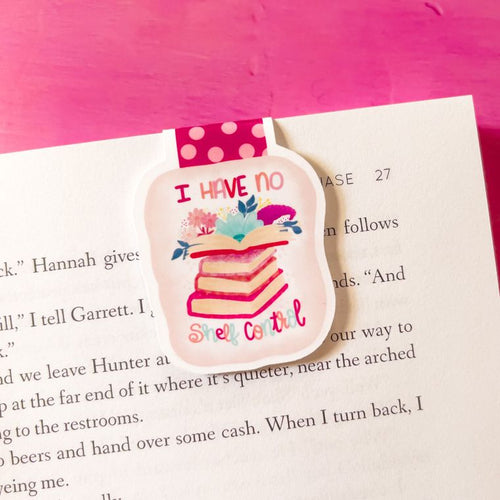 I HAVE NO
Shelf Control
ASE 27
ck." Hannah gives
en follows
nds. "And
ill," I tell Garrett. I
k."
our way to
nd we leave Hunter at
p at the far end of it where it's quieter, near the arched
g to the restrooms.
o beers and hand over some cash. When I turn back, I
yeing me.
ually